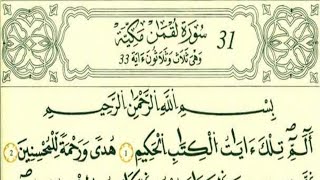 سُورَةُ لُقْمَٰنَ مَكِّيَّةٌ 31
وَهْىَ ثَلَاثٌ وَثَلَاثُونَ ءَايَةً 33
بِسْمِ اللَّهِ الرَّحْمَٰنِ الرَّحِيمِ
أَلَٓمِّٓ تِلْكَ ءَايَٰتُ الْكِتَٰبِ الْحَكِيمِ 1 هُدىً وَرَحْمَةً لِّلْمُحْسِنِينَ 2